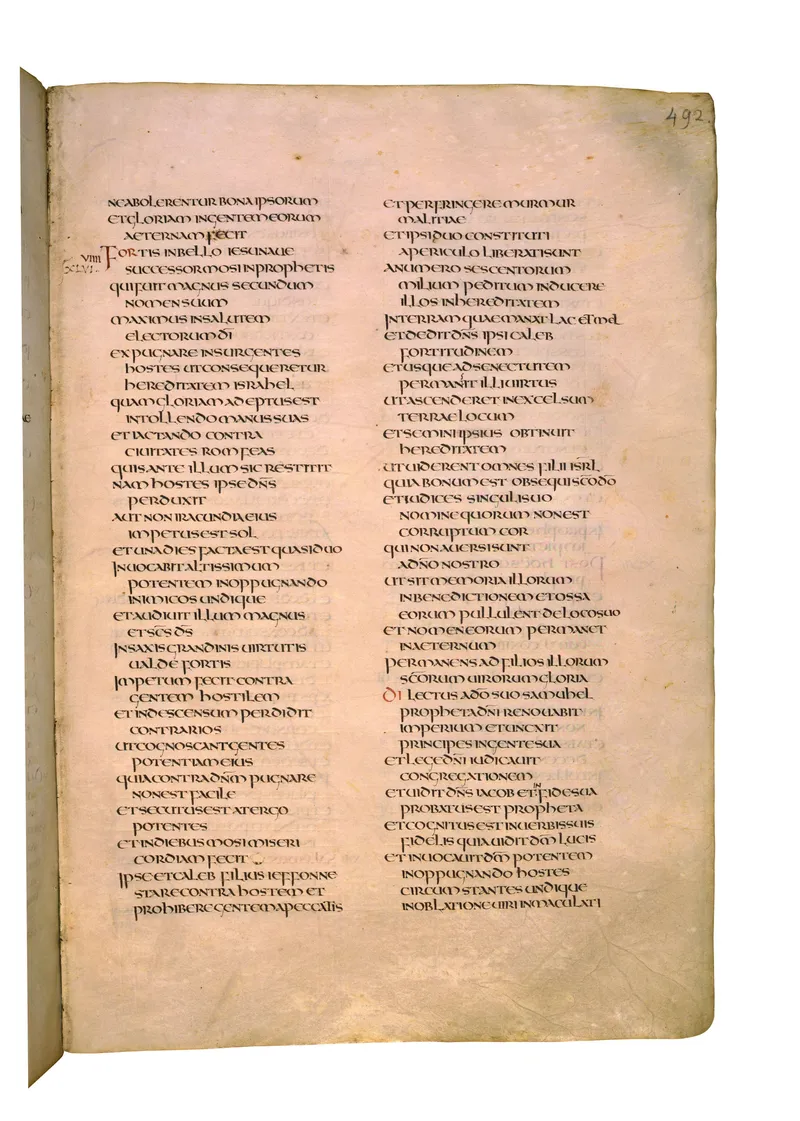 492.
NEABOLERENTUR BONA IPSORUM
ET GLORIAM INGENTEM EORUM
AETERNAM FECIT
VIIII FORTIS IN BELLO IESU NAUE
XLVI SUCCESSOR MOSI IN PROPHETIS
QUI FUIT MAGNUS SECUNDUM
NOMEN SUUM
MAXIMUS IN SALUTEM
ELECTORUM D̄I
EXPUGNARE INSURGENTES
HOSTES UT CONSEQUERETUR
HEREDITATEM ISRAHEL
QUAM GLORIAM ADEPTUS EST
IN TOLLENDO MANUS SUAS
ET IACTANDO CONTRA
CIUITATES ROMFEAS
QUIS ANTE ILLUM SIC RESTITIT
NAM HOSTES IPSE D̄N̄S
PERDUXIT
AUT NON IRACUNDIA EIUS
IMPETUS EST SOL
ET UNA DIES FACTA EST QUASI DUO
INUOCABIT ALTISSIMUM
POTENTEM IN OPPUGNANDO
INIMICOS UNDIQUE
ET AUDIUIT ILLUM MAGNUS
ET S̄C̄S D̄S
IN SAXIS GRANDINIS UIRTUTIS
UALDE FORTIS
IMPETUM FECIT CONTRA
GENTEM HOSTILEM
ET IN DESCENSUM PERDIDIT
CONTRARIOS
UT COGNOSCANT GENTES
POTENTIAM EIUS
QUIA CONTRA D̄N̄M PUGNARE
NON EST FACILE
ET SECUTUS EST A TERGO
POTENTES
ET IN DIEBUS MOSI MISERI
CORDIAM FECIT
IPSE ET CALEB FILIUS IEFFONNE
STARE CONTRA HOSTEM ET
PROHIBERE GENTEM A PECCATIS
ET PERFRINGERE MURMUR
MALITIAE
ET IPSI DUO CONSTITUTI
A PERICULO LIBERATI SUNT
A NUMERO SESCENTORUM
MILIUM PEDITUM INDUCERE
ILLOS IN HEREDITATEM
IN TERRAM QUAE MANAT LAC ET MEL
ET DEDIT D̄N̄S IPSI CALEB
FORTITUDINEM
ET USQUE AD SENECTUTEM
PERMANSIT ILLI UIRTUS
UT ASCENDERET IN EXCELSUM
TERRAE LOCUM
ET SEMEN IPSIUS OBTINUIT
HEREDITATEM
UT UIDERENT OMNES FILII ISR̄L
QUIA BONUM EST OBSEQUI S̄C̄O D̄O
ET IUDICES SINGULI SUO
NOMINE QUORUM NON EST
CORRUPTUM COR
QUI NON AUERSI SUNT
A D̄N̄O NOSTRO
UT SIT MEMORIA ILLORUM
IN BENEDICTIONEM ET OSSA
EORUM PULLULENT DE LOCO SUO
ET NOMEN EORUM PERMANET
IN AETERNUM
PERMANENS AD FILIOS ILLORUM
S̄C̄ORUM UIRORUM GLORIA
DILECTUS A D̄O SUO SAMUHEL
PROPHETA D̄N̄I RENOUABIT
IMPERIUM ET UNCXIT
PRINCIPES IN GENTE SUA
ET LEGE D̄N̄I IUDICAUIT
CONGREGATIONEM
ET UIDIT D̄N̄S IACOB ET IN FIDE SUA
PROBATUS EST PROPHETA
ET COGNITUS EST IN UERBIS SUIS
FIDELIS QUIA UIDIT D̄M̄ LUCIS
ET INUOCAUIT D̄M̄ POTENTEM
IN OPPUGNANDO HOSTES
CIRCUMSTANTES UNDIQUE
IN OBLATIONE UIRI INMACULATI